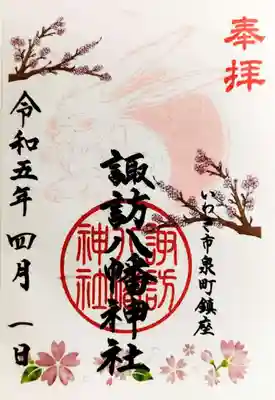 奉拝
いわき市泉町鎮座
諏訪八幡神社
諏訪
八幡
神社
令和五年 四月 一日